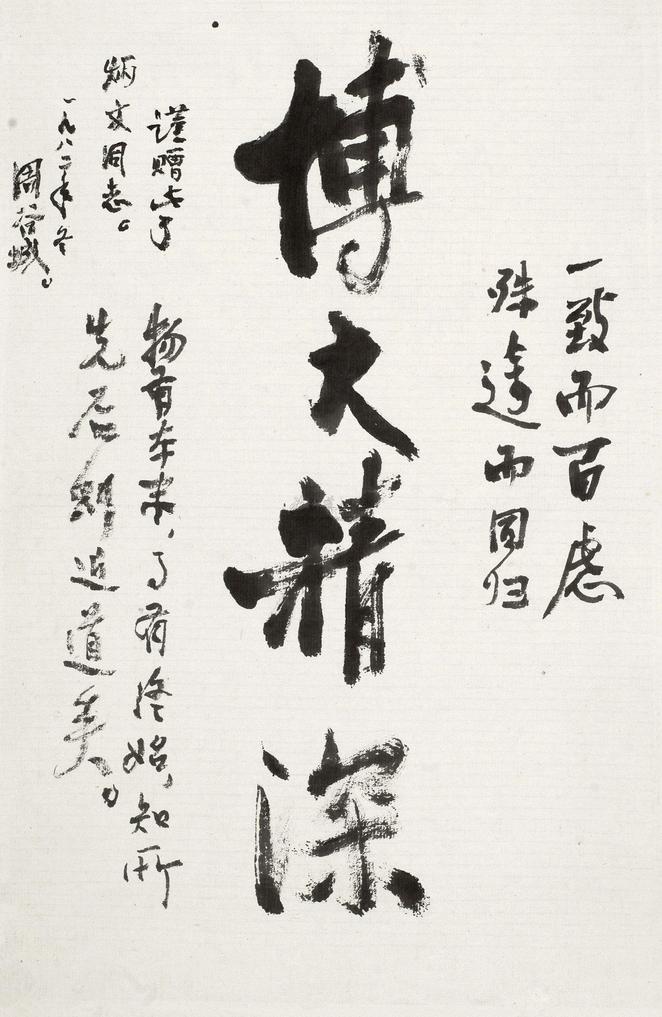 一致而百虑
殊途而同归
博大精深
物有本末,事有终始,知所
先后则近道矣。
谨赠此予
炳文同志。
一九八二年冬
周谷城。